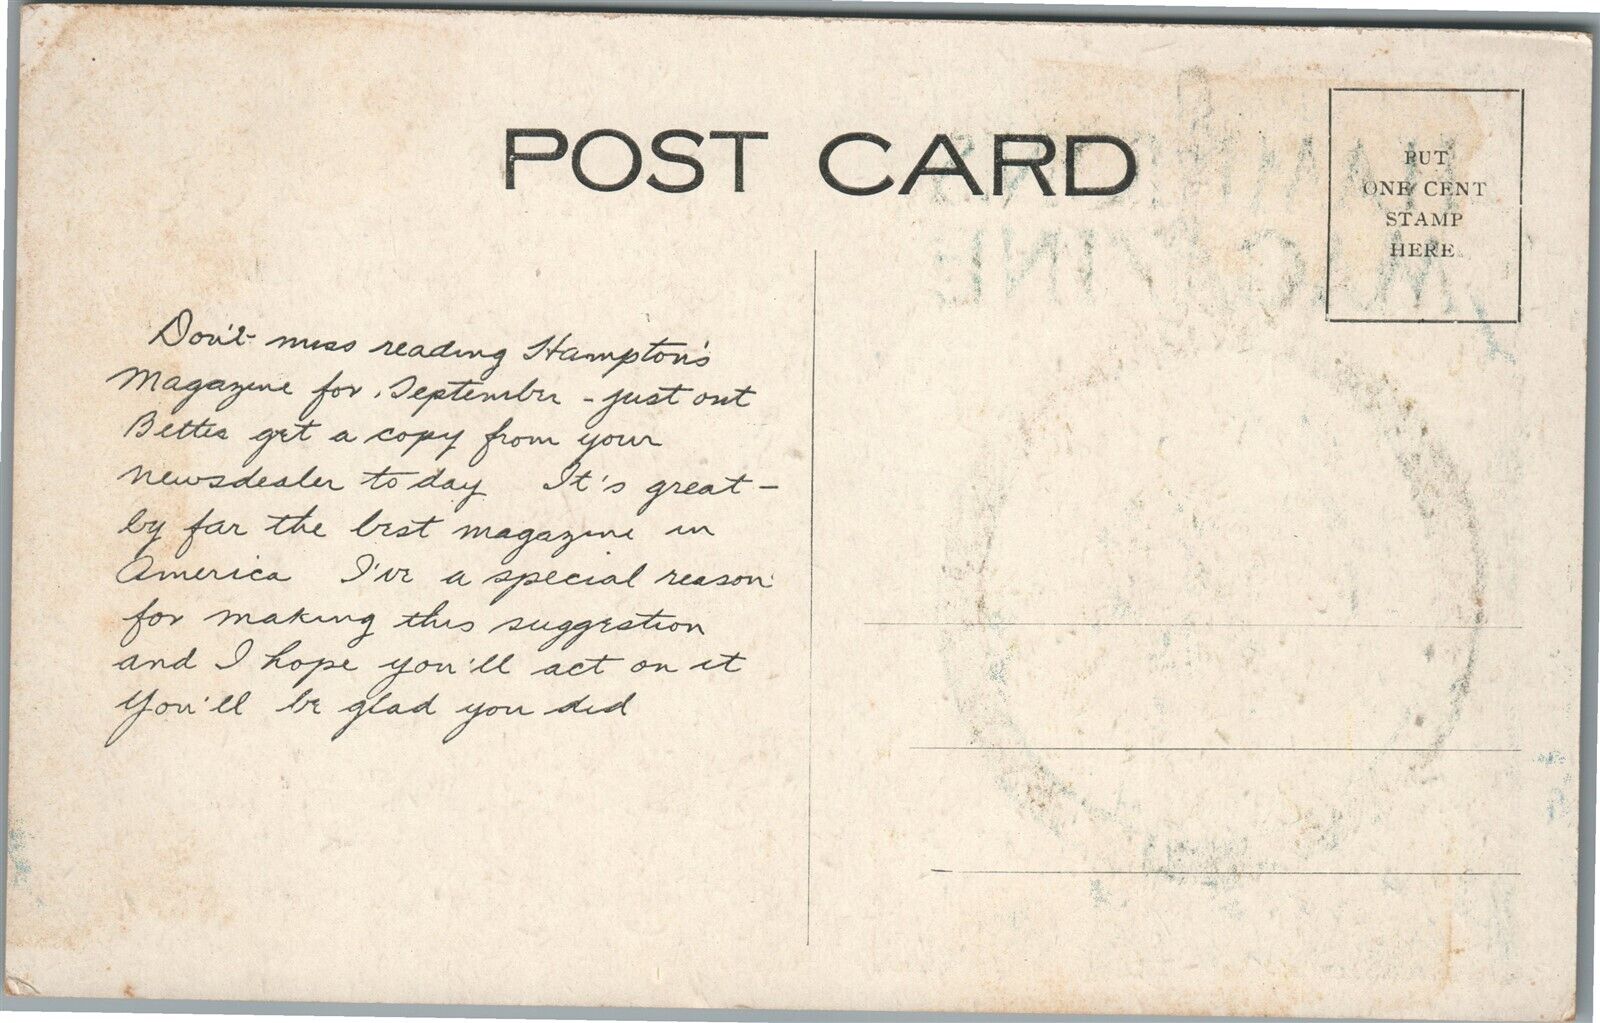 POST CARD
PUT
ONE CENT
STAMP
HERE
Don't miss reading Hampton's
Magazine for September - just out
Better get a copy from your
newsdealer to day It's great -
by far the best magazine in
America I've a special reason
for making this suggestion
and I hope you'll act on it
You'll be glad you did
HAMPTON'S
MAGAZINE